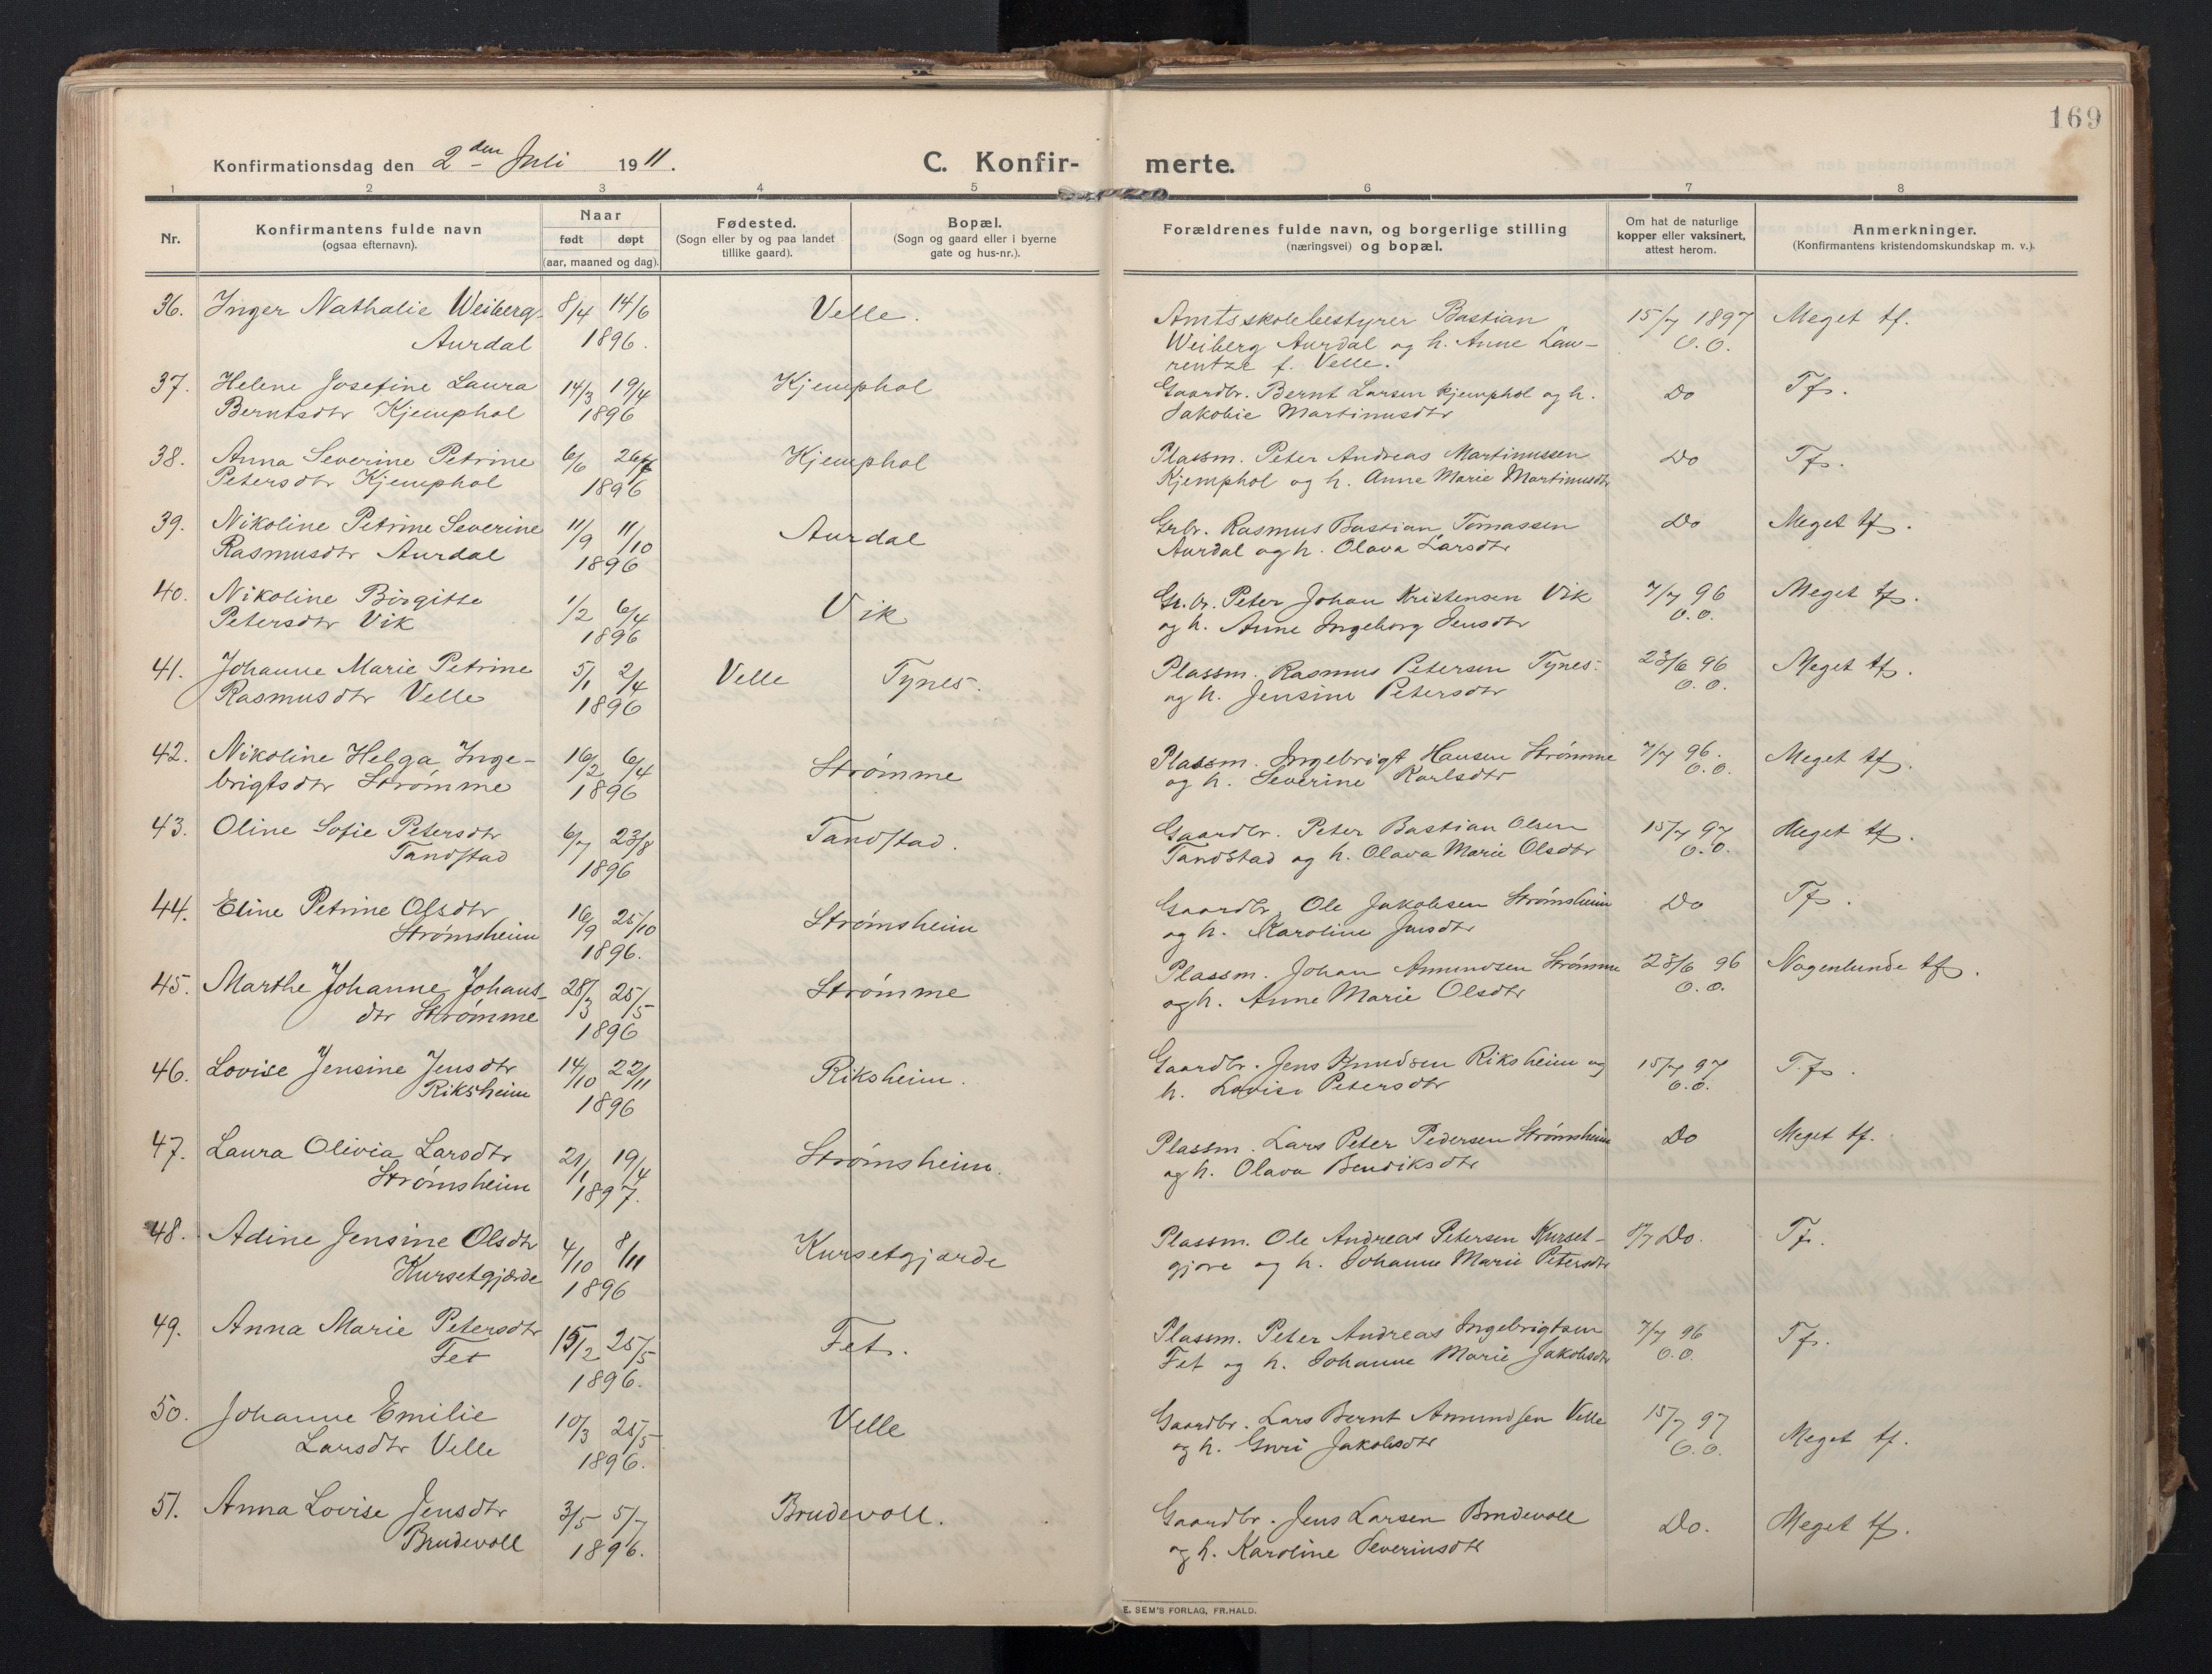 169
Konfirmationsdag den 2den Juli 1911.
C. Konfirmerte.
1 2 3 4 5 6 7 8
Nr.
Konfirmantens fulde navn
(ogsaa efternavn).
Naar
født døpt
(aar, maaned og dag).
Fødested.
(Sogn eller by og paa landet
tillike gaard).
Bopæl.
(Sogn og gaard eller i byerne
gate og hus-nr.).
Forældrenes fulde navn, og borgerlige stilling
(næringsvei) og bopæl.
Om hat de naturlige
kopper eller vaksinert,
attest herom.
Anmerkninger.
(Konfirmantens kristendomskundskap m. v.).
36. Inger Nathalie Weiberg- 8/4 14/6 Velle. Amtsskolebestyrer Bastian 15/7 1897 Meget tf.
Aurdal 1896. Weiberg Aurdal og h. Anne Lau- O.O.
rentze f. Velle.
37. Helene Josefine Laura 14/3 19/4 Kjemphol Gaardbr. Bernt Larsen Kjemphol og h. Do Tf.
Berntsdtr Kjemphol 1896 Jakobie Martinusdtr
38. Anna Severine Petrine 6/6 26/7 Kjemphol Plassm. Peter Andreas Martinussen Do Tf.
Petersdtr Kjemphol 1896 Kjemphol og h. Anne Marie Martinusdtr
39. Nikoline Petrine Severine 11/9 11/10 Aurdal Grbr. Rasmus Bastian Tomassen Do Meget tf.
Rasmusdtr Aurdal 1896 Aurdal og h. Olava Larsdtr
40. Nikoline Birgitte 1/2 6/4 Vik Gr.br. Peter Johan Kristensen Vik 7/7 96 Meget tf.
Petersdtr Vik 1896 og h. Anne Ingeborg Jensdtr O.O.
41. Johanne Marie Petrine 5/1 2/4 Velle Tynes. Plassm. Rasmus Petersen Tynes 23/6 96 Meget tf.
Rasmusdtr Velle 1896 og h. Jensine Petersdtr O.O.
42. Nikoline Helga Inge- 16/2 6/4 Strømme Plassm. Ingebrigt Hansen Strømme 7/7 96. Meget tf.
brigtsdtr Strømme 1896 og h. Severine Karlsdtr O.O.
43. Oline Sofie Petersdtr 6/7 23/8 Tandstad. Gaardbr. Peter Bastian Olsen 15/7 97 Meget tf.
Tandstad 1896 Tandstad og h. Olava Marie Olsdtr O.O.
44. Eline Petrine Olsdtr 16/9 25/10 Strømsheim Gaardbr. Ole Jakobsen Strømsheim Do Tf.
Strømsheim 1896. og h. Karoline Jensdtr
45. Marthe Johanne Johans- 28/3 25/5 Strømme Plassm. Johan Amundsen Strømme 23/6 96 Nogenlunde tf.
dtr Strømme 1896 og h. Anne Marie Olsdtr O.O.
46. Lovise Jensine Jensdtr 14/10 22/11 Riksheim. Gaardbr. Jens Knudsen Riksheim og 15/7 97 T.f.
Riksheim 1896 h. Lovise Petersdtr O.O.
47. Laura Olivia Larsdtr 21/1 19/4 Strømsheim. Plassm. Lars Peter Pedersen Strømsheim Do Meget tf.
Strømsheim 1897. og h. Olava Bendiksdtr
48. Adine Jensine Olsdtr 4/10 8/11 Kursetgjærde Plassm. Ole Andreas Petersen Kurset- 8/7 Do. Tf.
Kursetgjærde 1896 gjøre og h. Johanne Marie Petersdtr
49. Anna Marie Petersdtr 15/2 25/5 Fet. Plassm. Peter Andreas Ingebrigtsen 7/7 96 Tf.
Fet 1896. Fet og h. Johanne Marie Jakobsdtr O.O.
50. Johanne Emilie 10/3 25/5 Velle Gaardbr. Lars Bernt Amundsen Velle 15/7 97 Meget tf.
Larsdtr Velle 1896. og h. Guri Jakobsdtr O.O.
51. Anna Lovise Jensdtr 3/5 5/7 Brudevoll. Gaardbr. Jens Larsen Brudevoll Do. Meget tf.
Brudevoll 1896. og h. Karoline Severinsdtr
E. SEM'S FORLAG, FR.HALD.